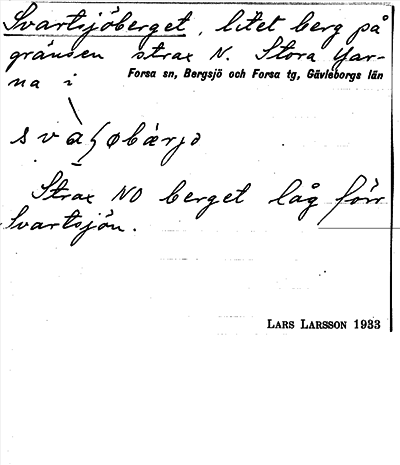 Svartsjöberget, litet berg på
gränsen strax N. Stora Gar-
na i Forsa sn, Bergsjö och Forsa tg, Gävleborgs län
Strax NO berget låg förr
Svartsjön.
LARS LARSSON 1933